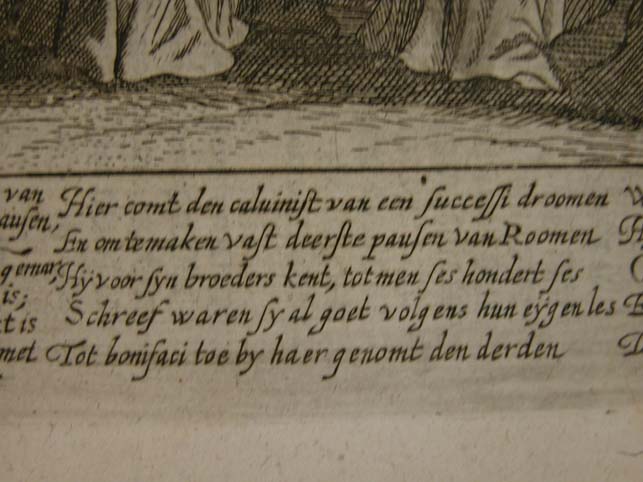 van Hier comt den caluinist van een successi droomen
ausen, En om temaken vast deerste pausen van Roomen
gemar, Hÿ voor syn broeders kent, tot men ses hondert ses
is; Schreef waren sy al goet volgens hun eÿgen les
t is
met Tot bonifaci toe by haer genomt den derden